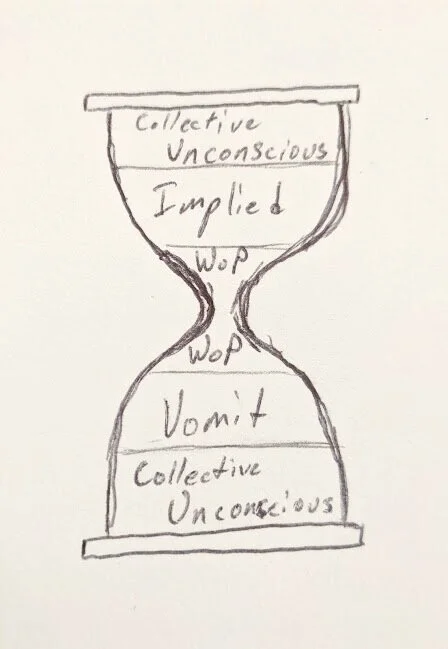 Collective
Unconscious
Implied
WoP
WoP
Vomit
Collective
Unconscious